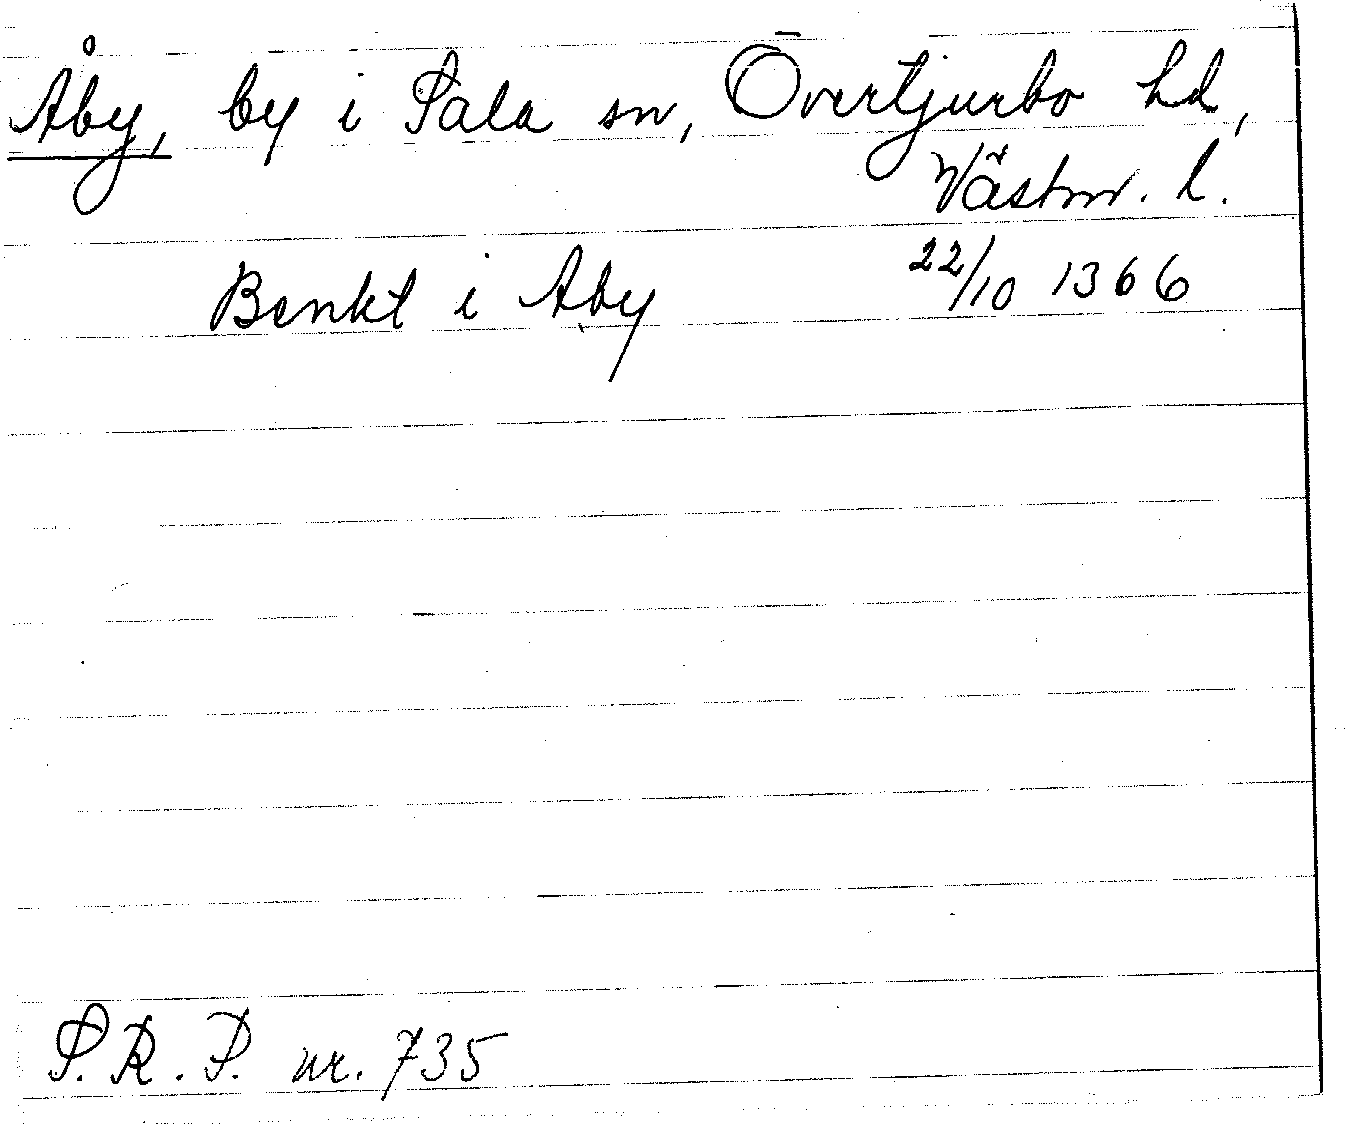 Åby, by i Sala sn, Övertjurbo hd,
Västm. l.
Benkt i Aby 22/10 1366
S.R.P. nr. 735